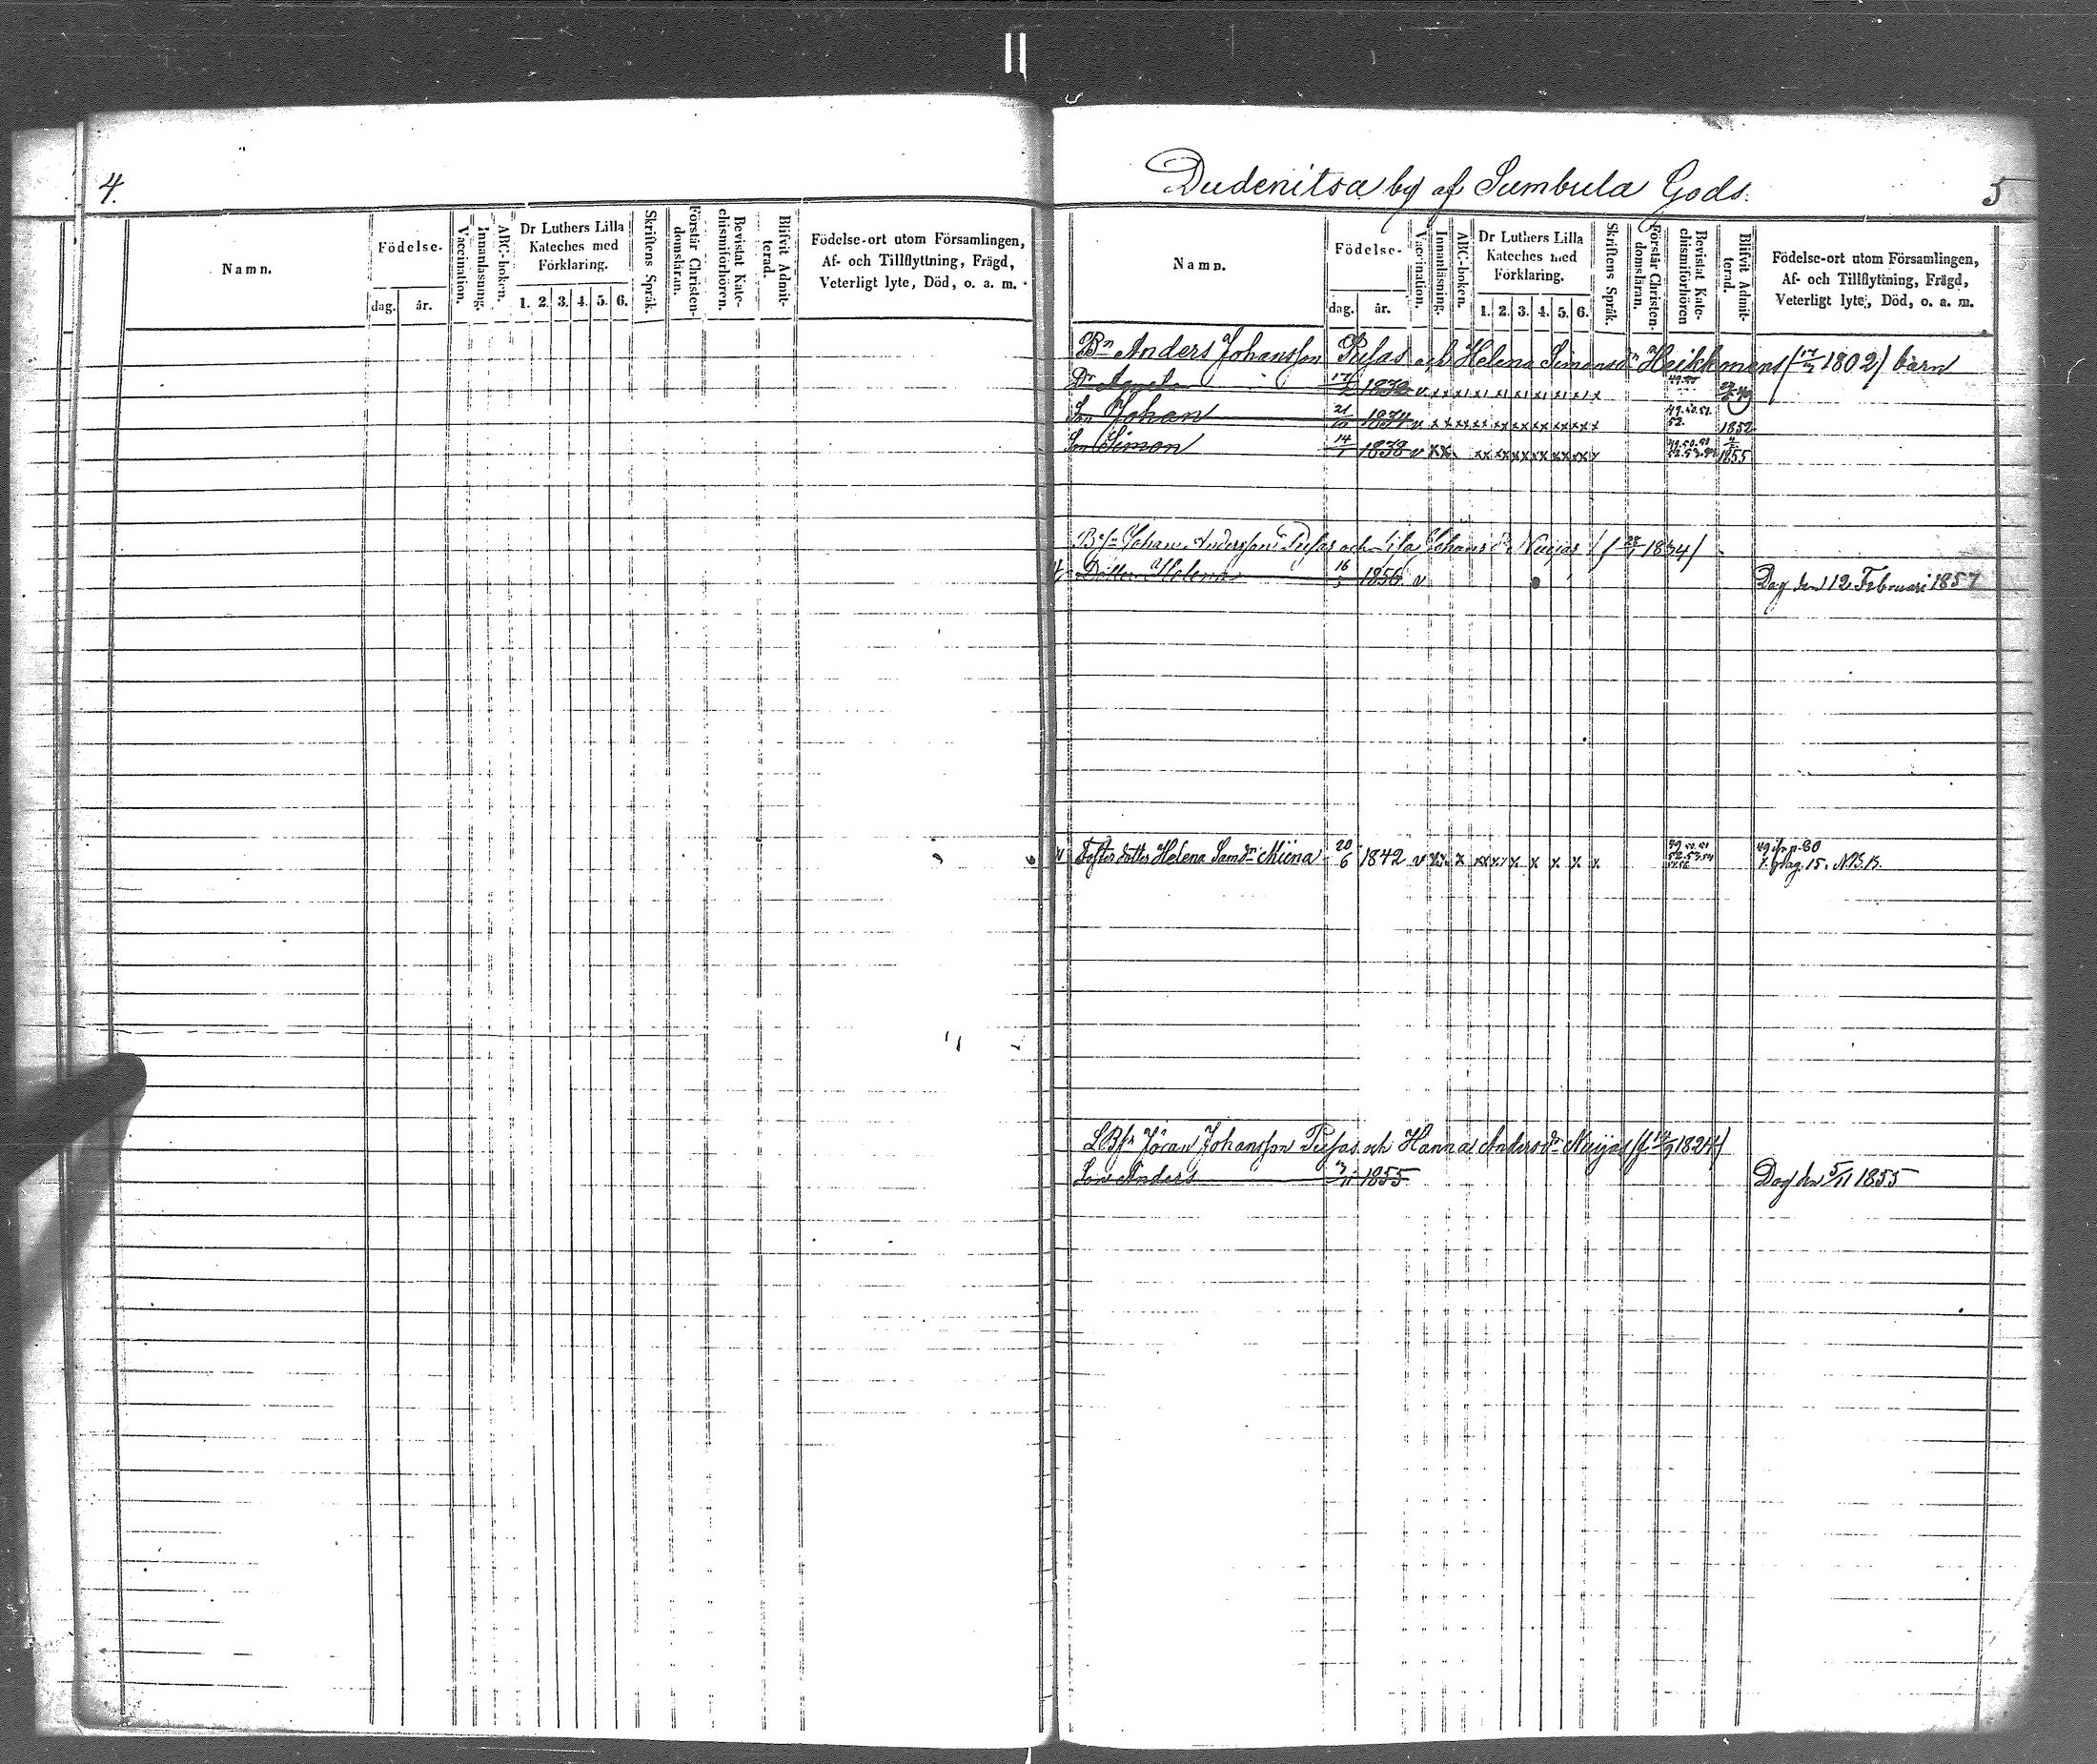 4.
Namn.
Födelse-
dag.
år.
Vaccination.
Innanläsning.
ABC-boken.
Dr Luthers Lilla
Kateches med
Förklaring.
1. 2. 3. 4. 5. 6.
Skriftens Språk.
Förstår Christen-
domsläran.
Bevistat Kate-
chismiförhören.
Blifvit Admit-
terad.
Födelse-ort utom Församlingen,
Af- och Tillflyttning, Frägd,
Veterligt lyte, Död, o. a. m.
Dudenitsa by af Sumbula Gods.
5
Namn.
Födelse-
dag.
år.
Vaccination.
Innanläsning.
ABC-boken.
Dr Luthers Lilla
Kateches med
Förklaring.
1. 2. 3. 4. 5. 6.
Skriftens Språk.
Förstår Christen-
domsläran.
Bevistat Kate-
chismiförhören
Blifvit Admit-
terad.
Födelse-ort utom Församlingen,
Af- och Tillflyttning, Frägd,
Veterligt lyte, Död, o. a. m.
Bn Anders Johansson Pusas och Helena Simonsdr Heikkinens 1802) barn
Dr 1832 v
Son Johan 21/10 1834 v 49.50.51. 52. 1852
Son Simon 14/1 1838 v xx 1855
Johan Andersson Pusas och Johansdr Nuijas 28/1 1834)
Dotter Helena 16/5 1856 v Dog den 12 Februari 1857
Foster dotter Helena Samdr Miina 20/6 1842 v xx x xx xx x x x x x pag. 15. N.B.B.
LBfr Jöran Johansson Pusas och Hanna Andersdr Nuijas 1824)
Son Anders 3/11 1855 Dog den 5/11 1855